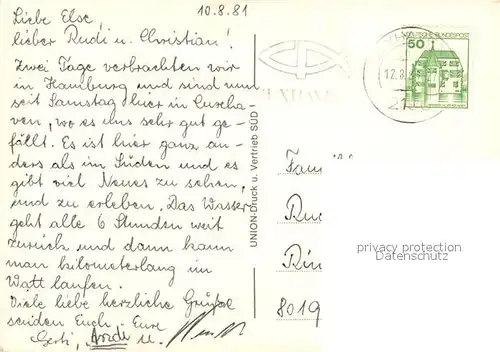 10.8.81
Liebe Else,
lieber Rudi u. Christian!
Zwei Tage verbrachten wir
in Hamburg und sind nun
seit Samstag hier in Cuxha-
ven, wo es uns sehr gut ge-
fällt. Es ist hier ganz an-
ders als im Süden und es
gibt viel Neues zu sehen,
und zu erleben. Das Wasser
geht alle 6 Stunden weit
zurück und dann kann
man kilometerlang im
Watt laufen.
Viele liebe herzliche Grüße
senden Euch Eure
Gerti, Andi u.
UNION-Druck u. Vertrieb SÜD
50
DEUTSCHE BUNDESPOST
12.8.
Fam
Ru
8019
privacy protection
Datenschutz